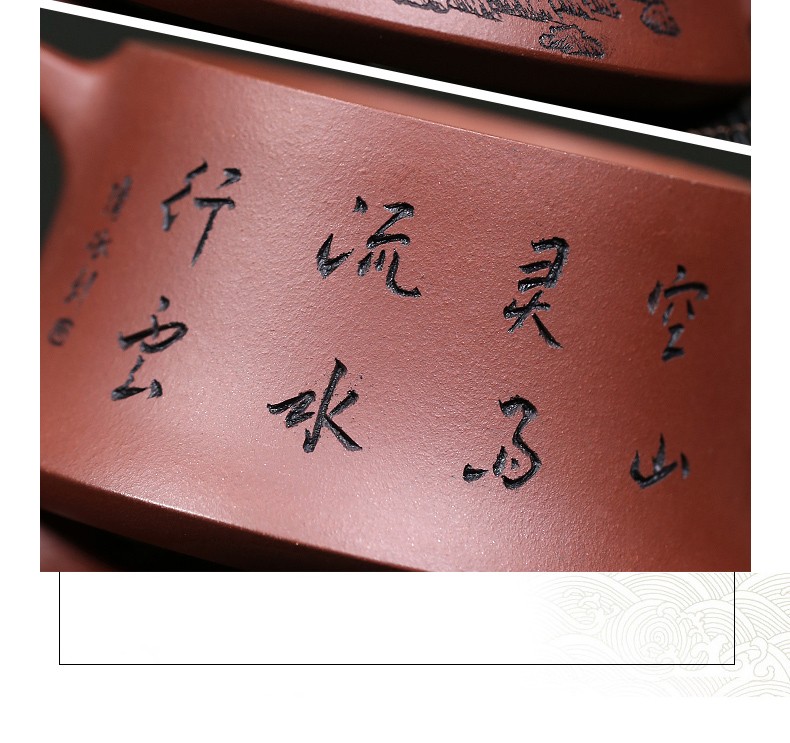 空山
灵雨
流水
行雲